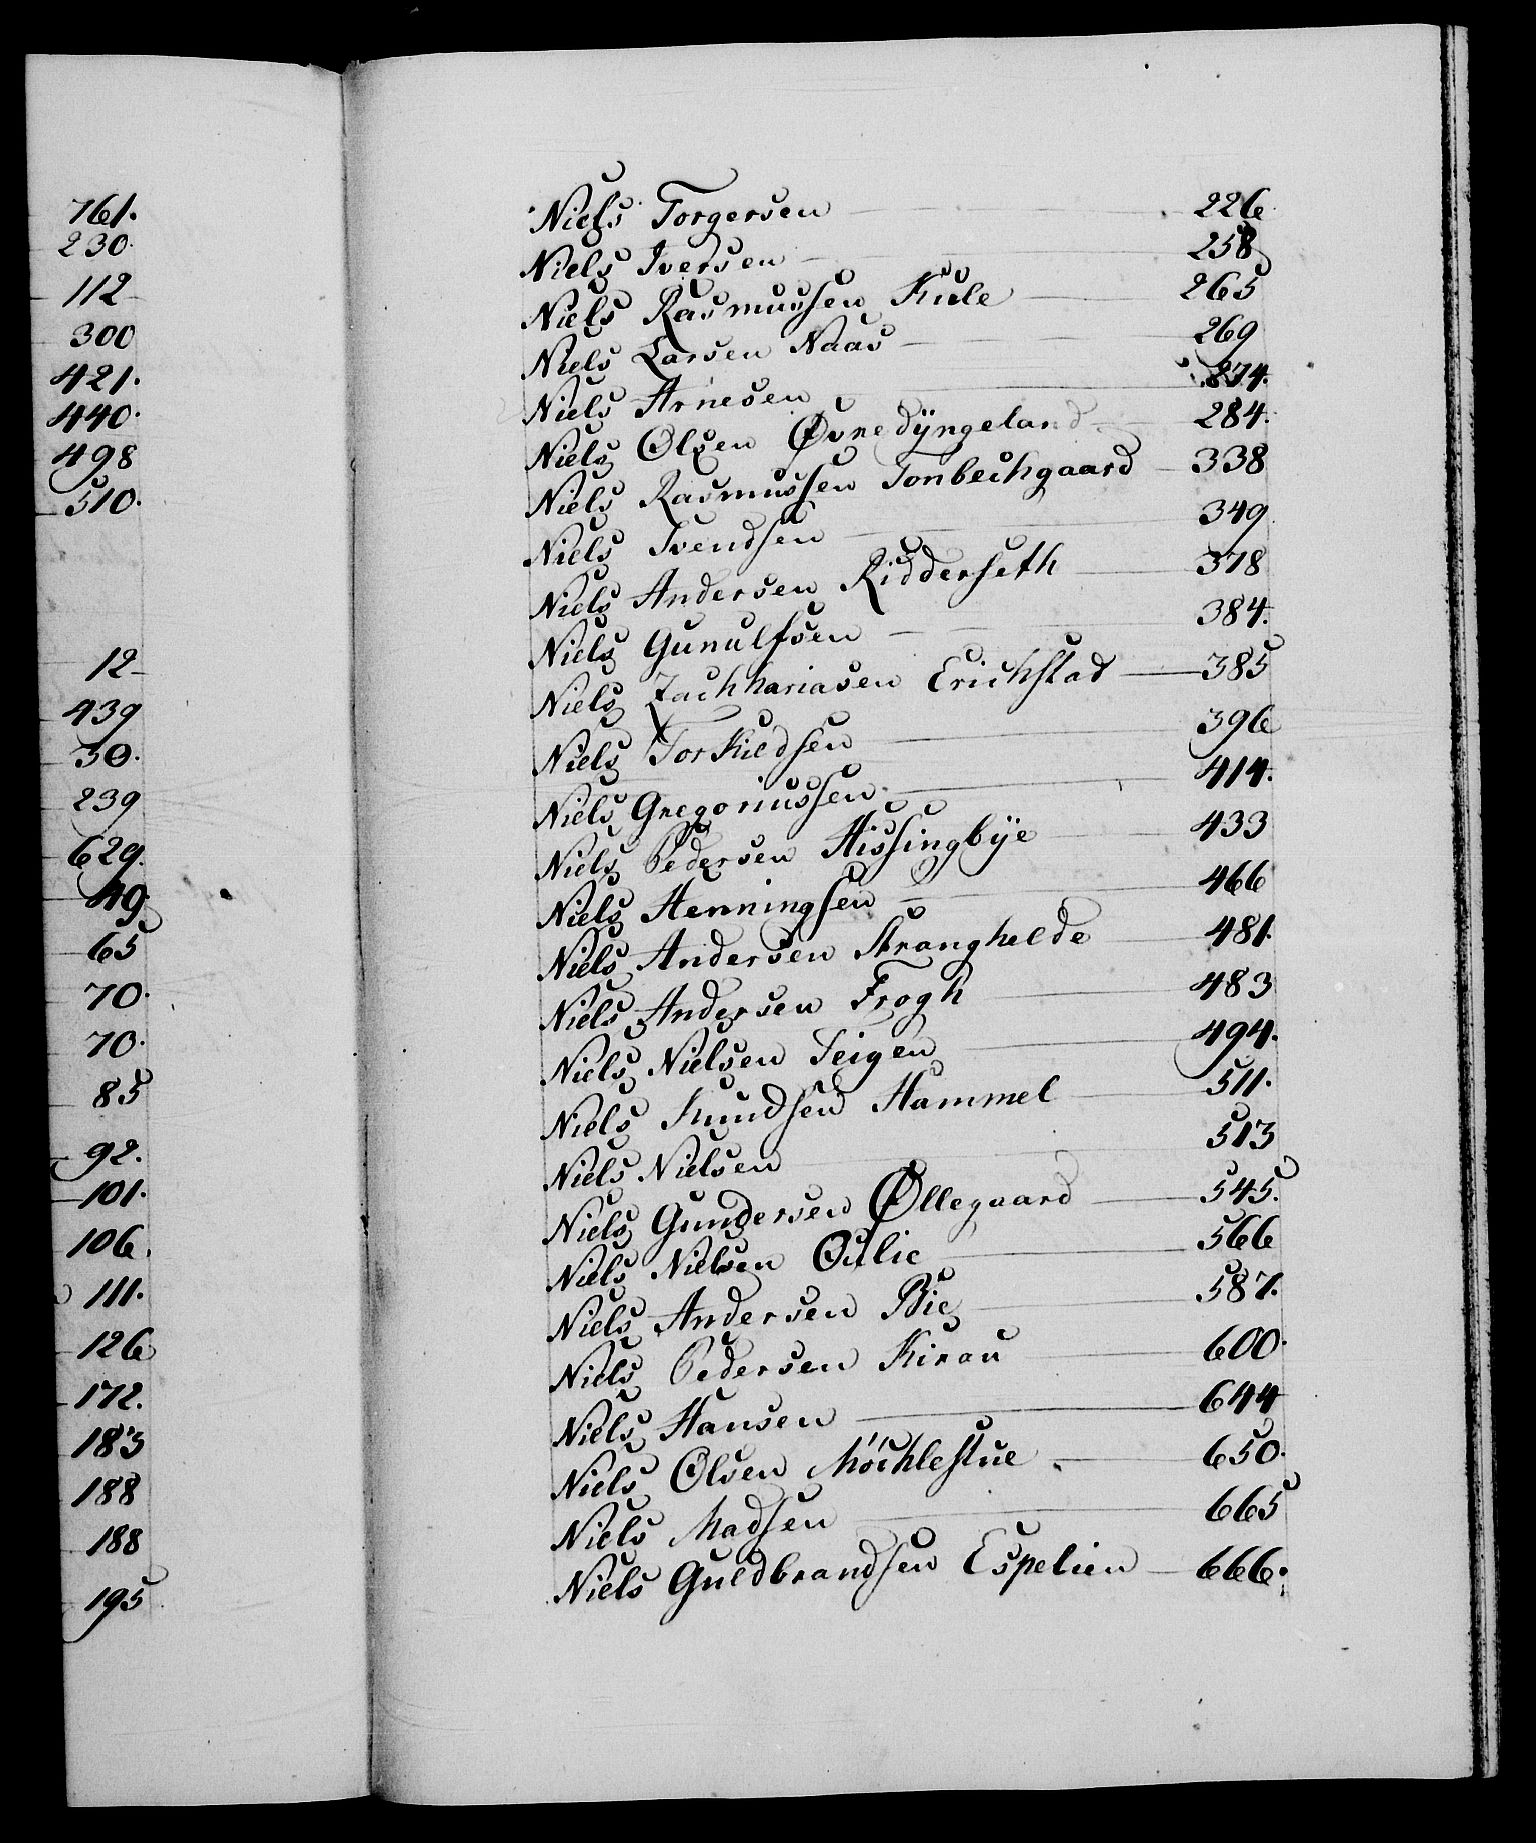 761.
230.
112
300
421.
440.
498
510.
12
439
30.
239
629.
49.
65
70.
70.
85
92.
101.
106.
111.
126
172.
183
188
188
195
Niels Torgersen 226
Niels Iversen 258
Niels Rasmussen Kule 265
Niels Larsen Naas 269
Niels Arnesen 274.
Niels Olsen Øvredÿngeland 284.
Niels Rasmussen Tonbechgaard 338
Niels Svendsen 349
Niels Andersen Ridderseth 378
Niels Gunulfsen 384.
Niels Zachhariasen Erichstad 385
Niels Torkildsen 396
Niels Gregoriussen 414.
Niels Pedersen Hissingbÿe 433
Niels Henningsen 466
Niels Andersen Stranghelde 481.
Niels Andersen Frogh 483
Niels Nielsen Teigen 494.
Niels Knudsen Hammel 511.
Niels Nielsen 513
Niels Gundersen Øllegaard 545.
Niels Nielsen Oulie 566
Niels Andersen Bie 587.
Niels Pedersen Kirau 600.
Niels Hansen 644
Niels Olsen Möchlestue 650.
Niels Madsen 665
Niels Guldbrandsen Espelien 666.